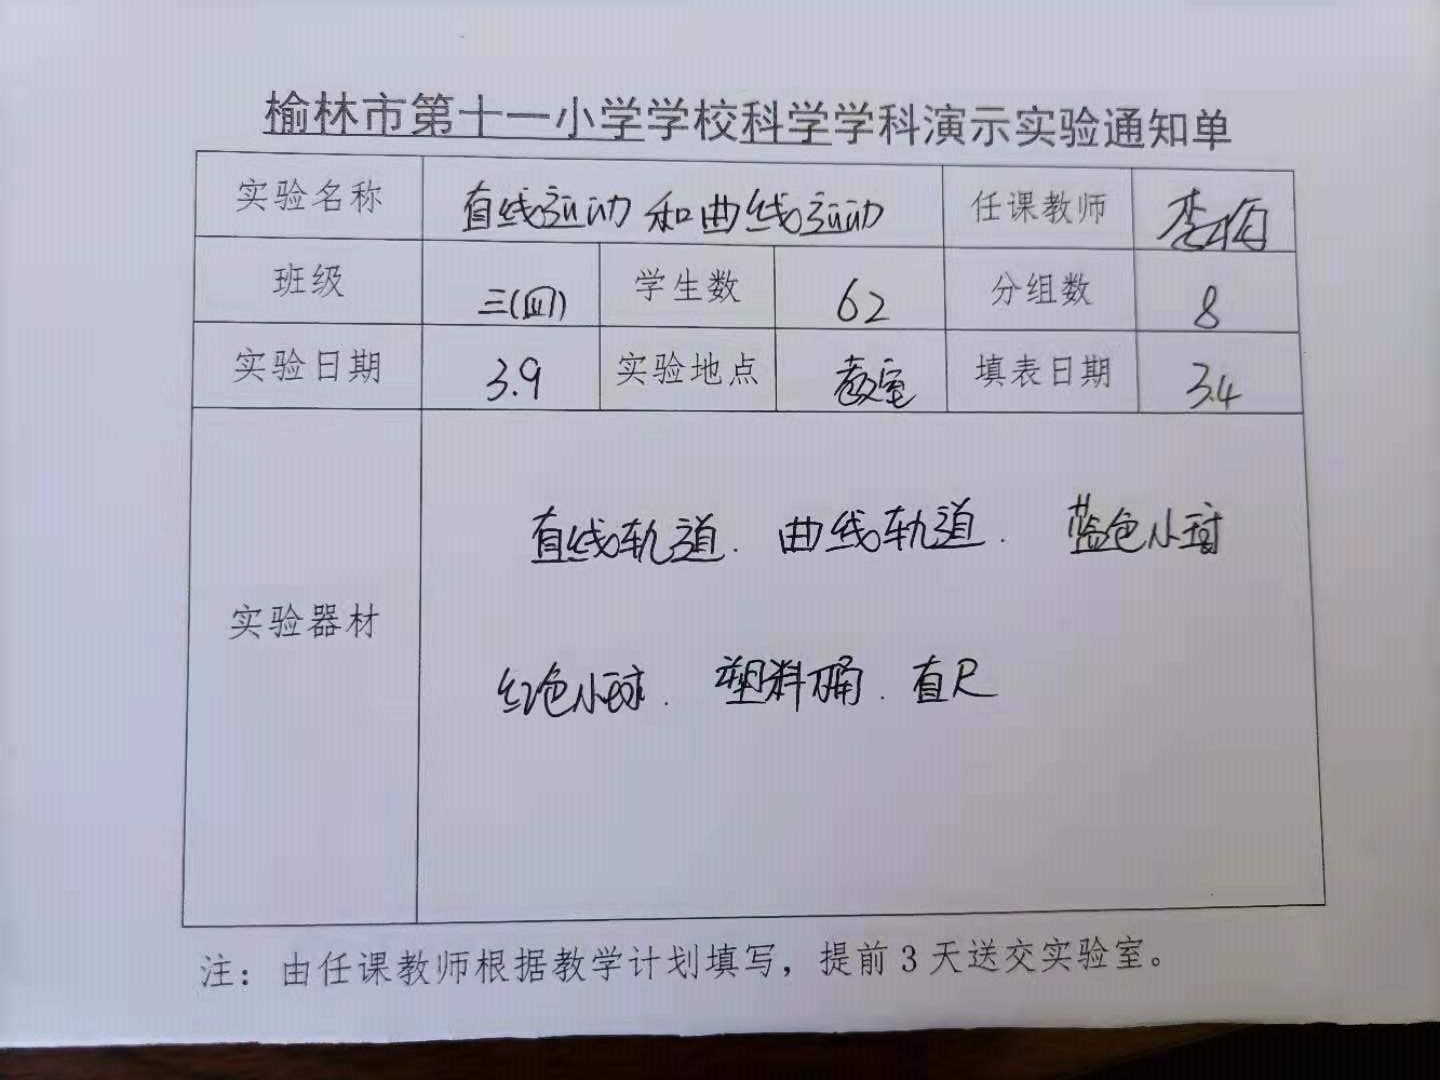 榆林市第十一小学学校科学学科演示实验通知单
实验名称 直线运动和曲线运动 任课教师 李梅
班级 三(四) 学生数 62 分组数 8
实验日期 3.9 实验地点 教室 填表日期 3.4
实验器材
直线轨道. 曲线轨道. 蓝色小球
红色小球. 塑料桶. 直尺
注：由任课教师根据教学计划填写，提前3天送交实验室。